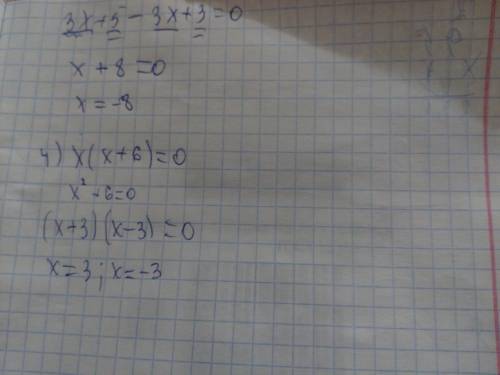 3x+5-3x+3=0
x+8=0
x=-8
4) x(x+6)=0
x²-6=0
(x+3)(x-3)=0
x=3; x=-3